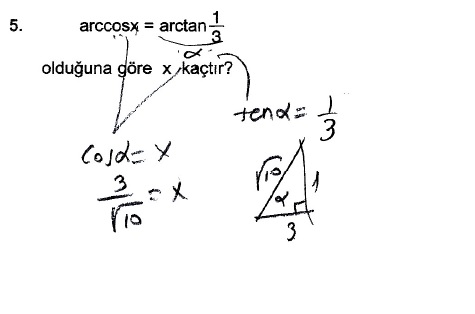 5. arccosx = arctan 1/3
α
olduğuna göre x kaçtır?
tanα = 1/3
cosα = x
3/√10 = x
√10 1
α
3